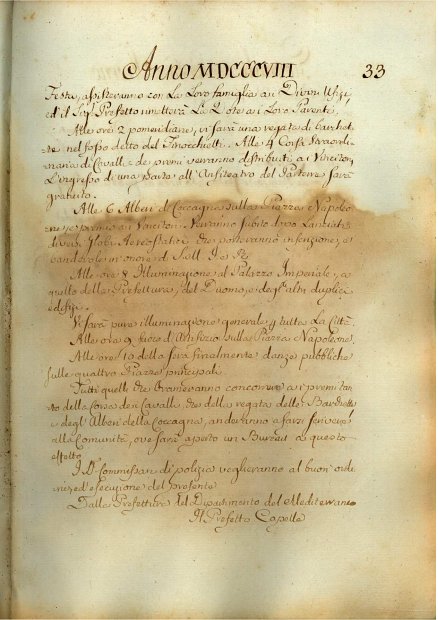 Anno MDCCCVIII 33
Festa, assisteranno con La Loro famiglia ai Divini Ufizi,
ed il Sigr Prefetto rimetterà La Dote ai Loro Parenti.
Alle ore 2 pomeridiane, vi sarà una regata di barchet-
te nel fosso detto del Finocchietti. Alle 4 Corsa Straordi-
naria di Cavalli, e de premi verranno distribuiti ai Vincitori
L'ingresso di una parte all'Anfiteatro del Parterre sarà
gratuito.
Alle 6 Alberi di Coccagna sulla Piazza Napoleo-
ne, e premio ai Vincitori. Verranno subito dopo Lanciati
diversi Globi Aereostatici che porteranno inscrizione, e
banderole in onore di S.M. I. e R.
Alle ore 8 Illuminazione al Palazzo Imperiale, a
quello della Prefettura, del Duomo, e degl'altri pubblici
edifizi.
Vi sarà pure illuminazione generale p tutta La Città.
Alle ore 9 fuoco d'Artifizio sulla Piazza Napoleone.
Alle ore 10 della sera finalmente danze pubbliche
sulle quattro Piazze principali.
Tutti quelli che brameranno concorrere ai premi tan-
to della Corsa dei Cavalli, che della regata delle Barchette
e degl'Alberi della Coccagna, anderanno a farsi scrivere
alla Comunità, ove sarà aperto un Bureau a questo
effetto.
I Di Commissari di polizia veglieranno al buon ordi-
ne, ed esecuzione del presente
Dalla Prefettura del Dipartimento del Mediterraneo
Il Prefetto Capelle